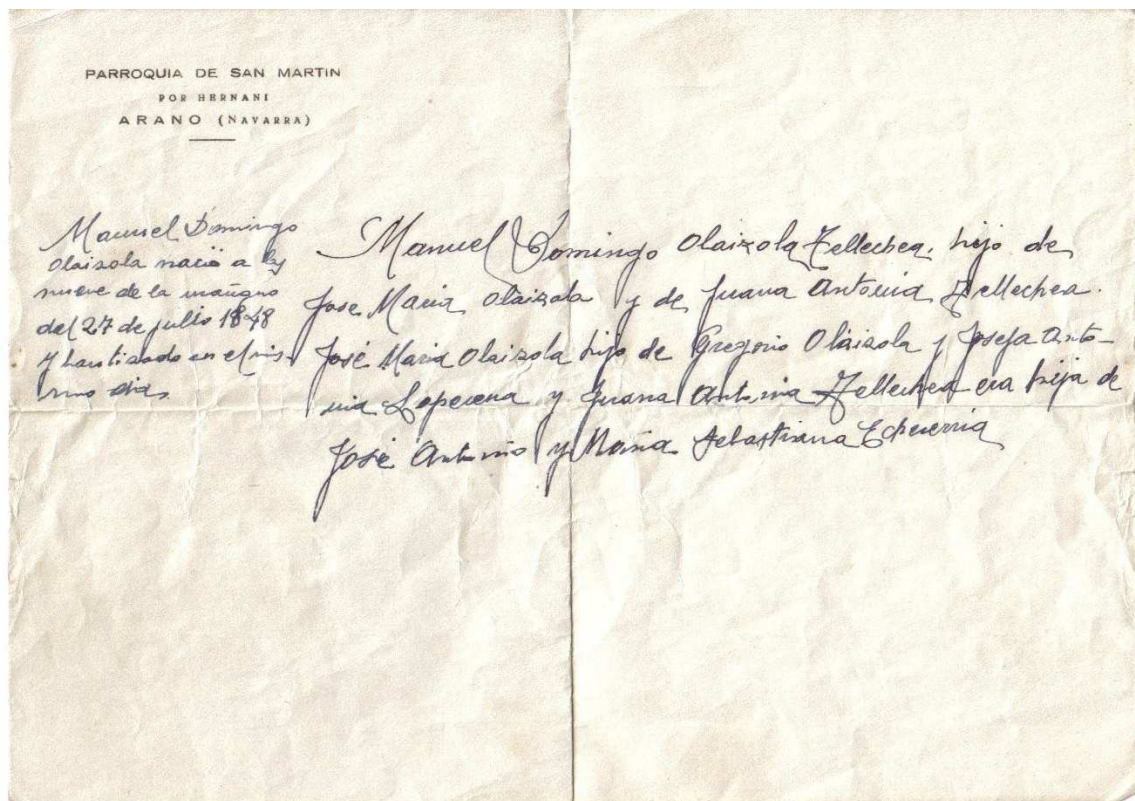 PARROQUIA DE SAN MARTIN
POR HERNANI
ARANO (NAVARRA)
Manuel Domingo
Olaizola nació a las
nueve de la mañana
del 27 de julio 1848
y bautizado en el mis-
mo dia
Manuel Domingo Olaizola Zellechea, hijo de
Jose Maria Olaizola y de Juana Antonia Zellechea.
José Maria Olaizola hijo de Gregorio Olaizola y Josefa Anto-
nia Loperena y Juana Antonia Zellechea era hija de
José Antonio y Maria Sebastiana Echeverria